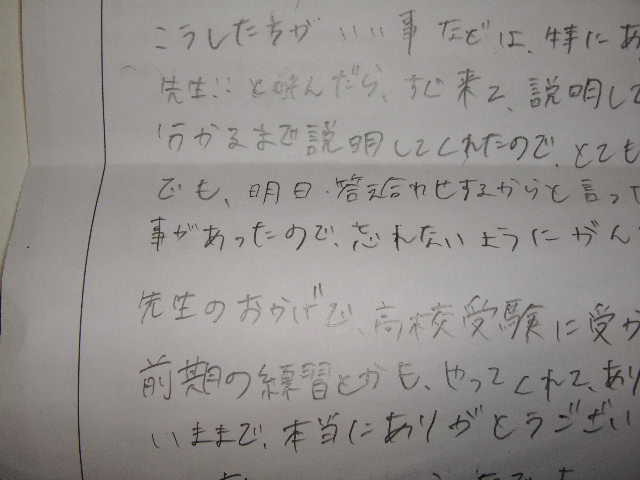 こうした方が いい事 などは、特にあ
先生!! と呼んだら、すぐ来て、説明して
分かるまで説明してくれたので、とても
でも、明日、答え合わせするからと言って
事があったので、忘れないようにがん
先生のおかげで、高校受験に受か
前期の練習とかも、やってくれて、あり
いままで、本当にありがとうござい